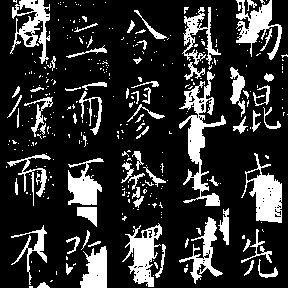 物混成先
地生寂
兮寥兮獨
立而改
周行而不